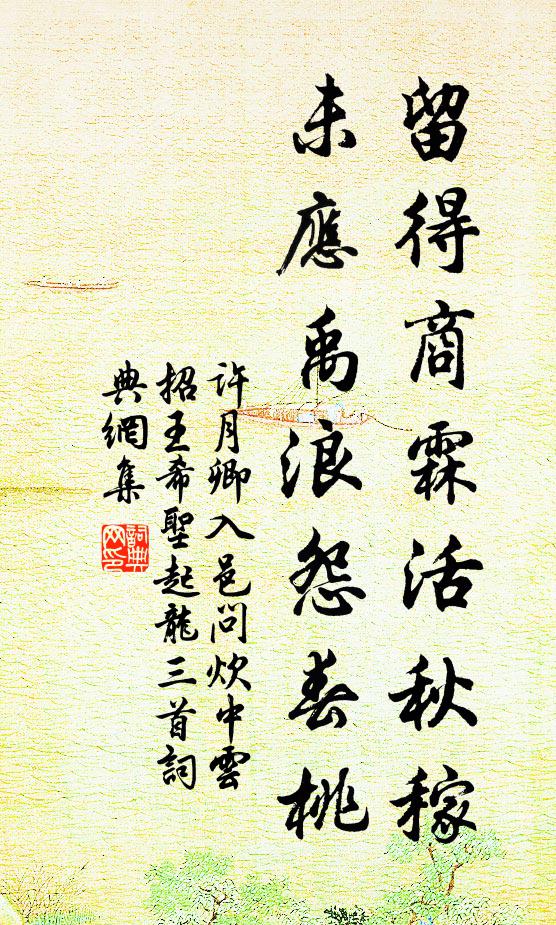 留得商霖活秋稼
未應禹浪怨春桃
許月卿入邑問炊中雲
招王希聖起龍三首詞
典網集
詞典
网印